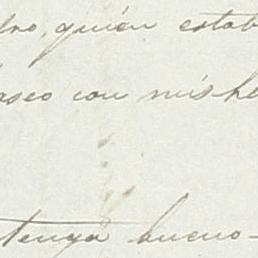 dro, quién estab
aseo con mis he
tenga bueno-